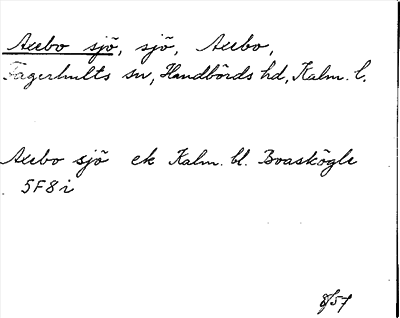 Allebo sjö, sjö, Allebo,
Fagerhults sn, Handbörds hd, Kalm. l.
Allebo sjö ek Kalm. bl. Boaskögle
5F8i
8/57